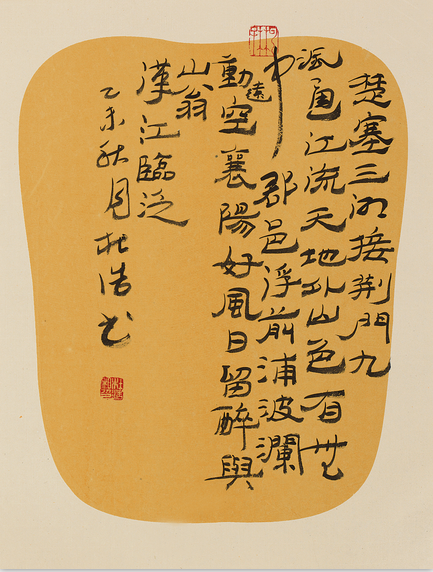 楚塞三湘接荆門九
派通江流天地外山色有無
中郡邑浮前浦波瀾
動遠空襄陽好風日留醉與
山翁
漢江臨泛
乙未秋月杜浩书